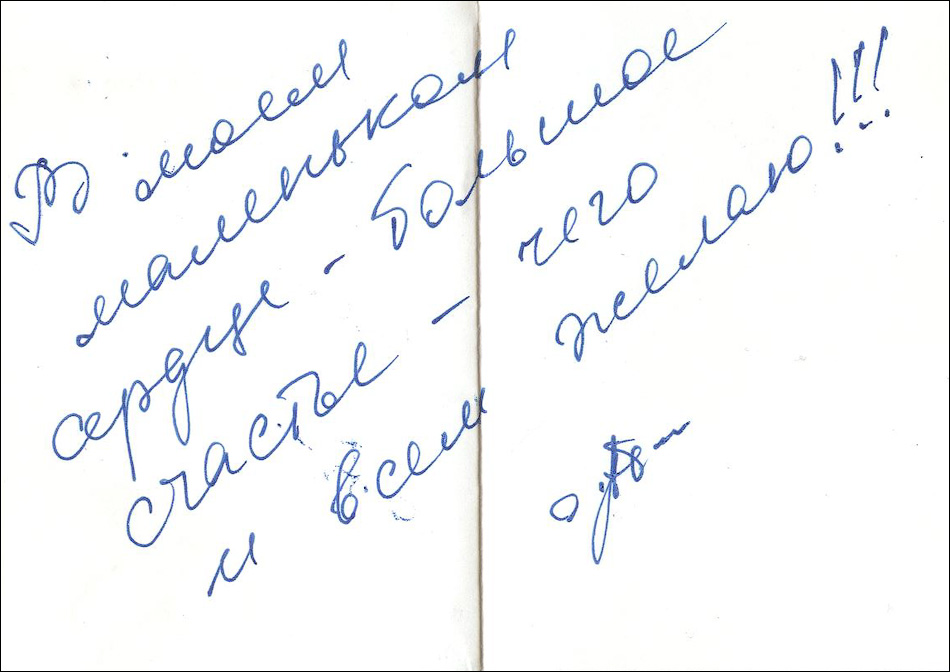 В моем
маленьком
сердце - большое
счастье - чего
и всем желаю!!!